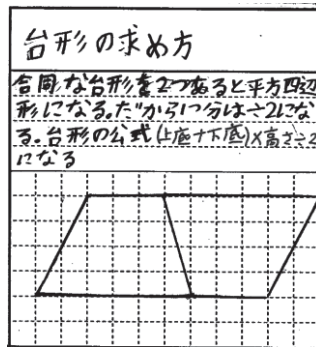 台形の求め方
合同な台形を2つあると平方四辺
形になる。だから1つ分は÷2にな
る。台形の公式(上底+下底)×高さ÷2
になる